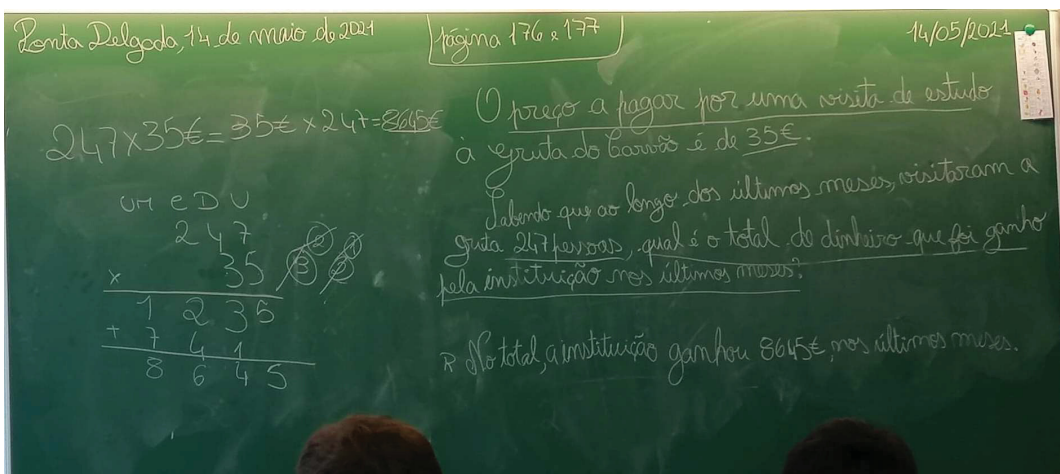 Ponta Delgada, 14 de maio de 2021
página 176 e 177
14/05/2021
247x35€=35€x247=8645€
UM C D U
247
x 35
3 2 2 1
1 235
+ 7 4 1
8 6 4 5
O preço a pagar por uma visita de estudo
à gruta do Carvão é de 35€.
Sabendo que ao longo dos últimos meses, visitaram a
gruta 247 pessoas, qual é o total de dinheiro que foi ganho
pela instituição nos últimos meses?
R No total, a instituição ganhou 8645€, nos últimos meses.